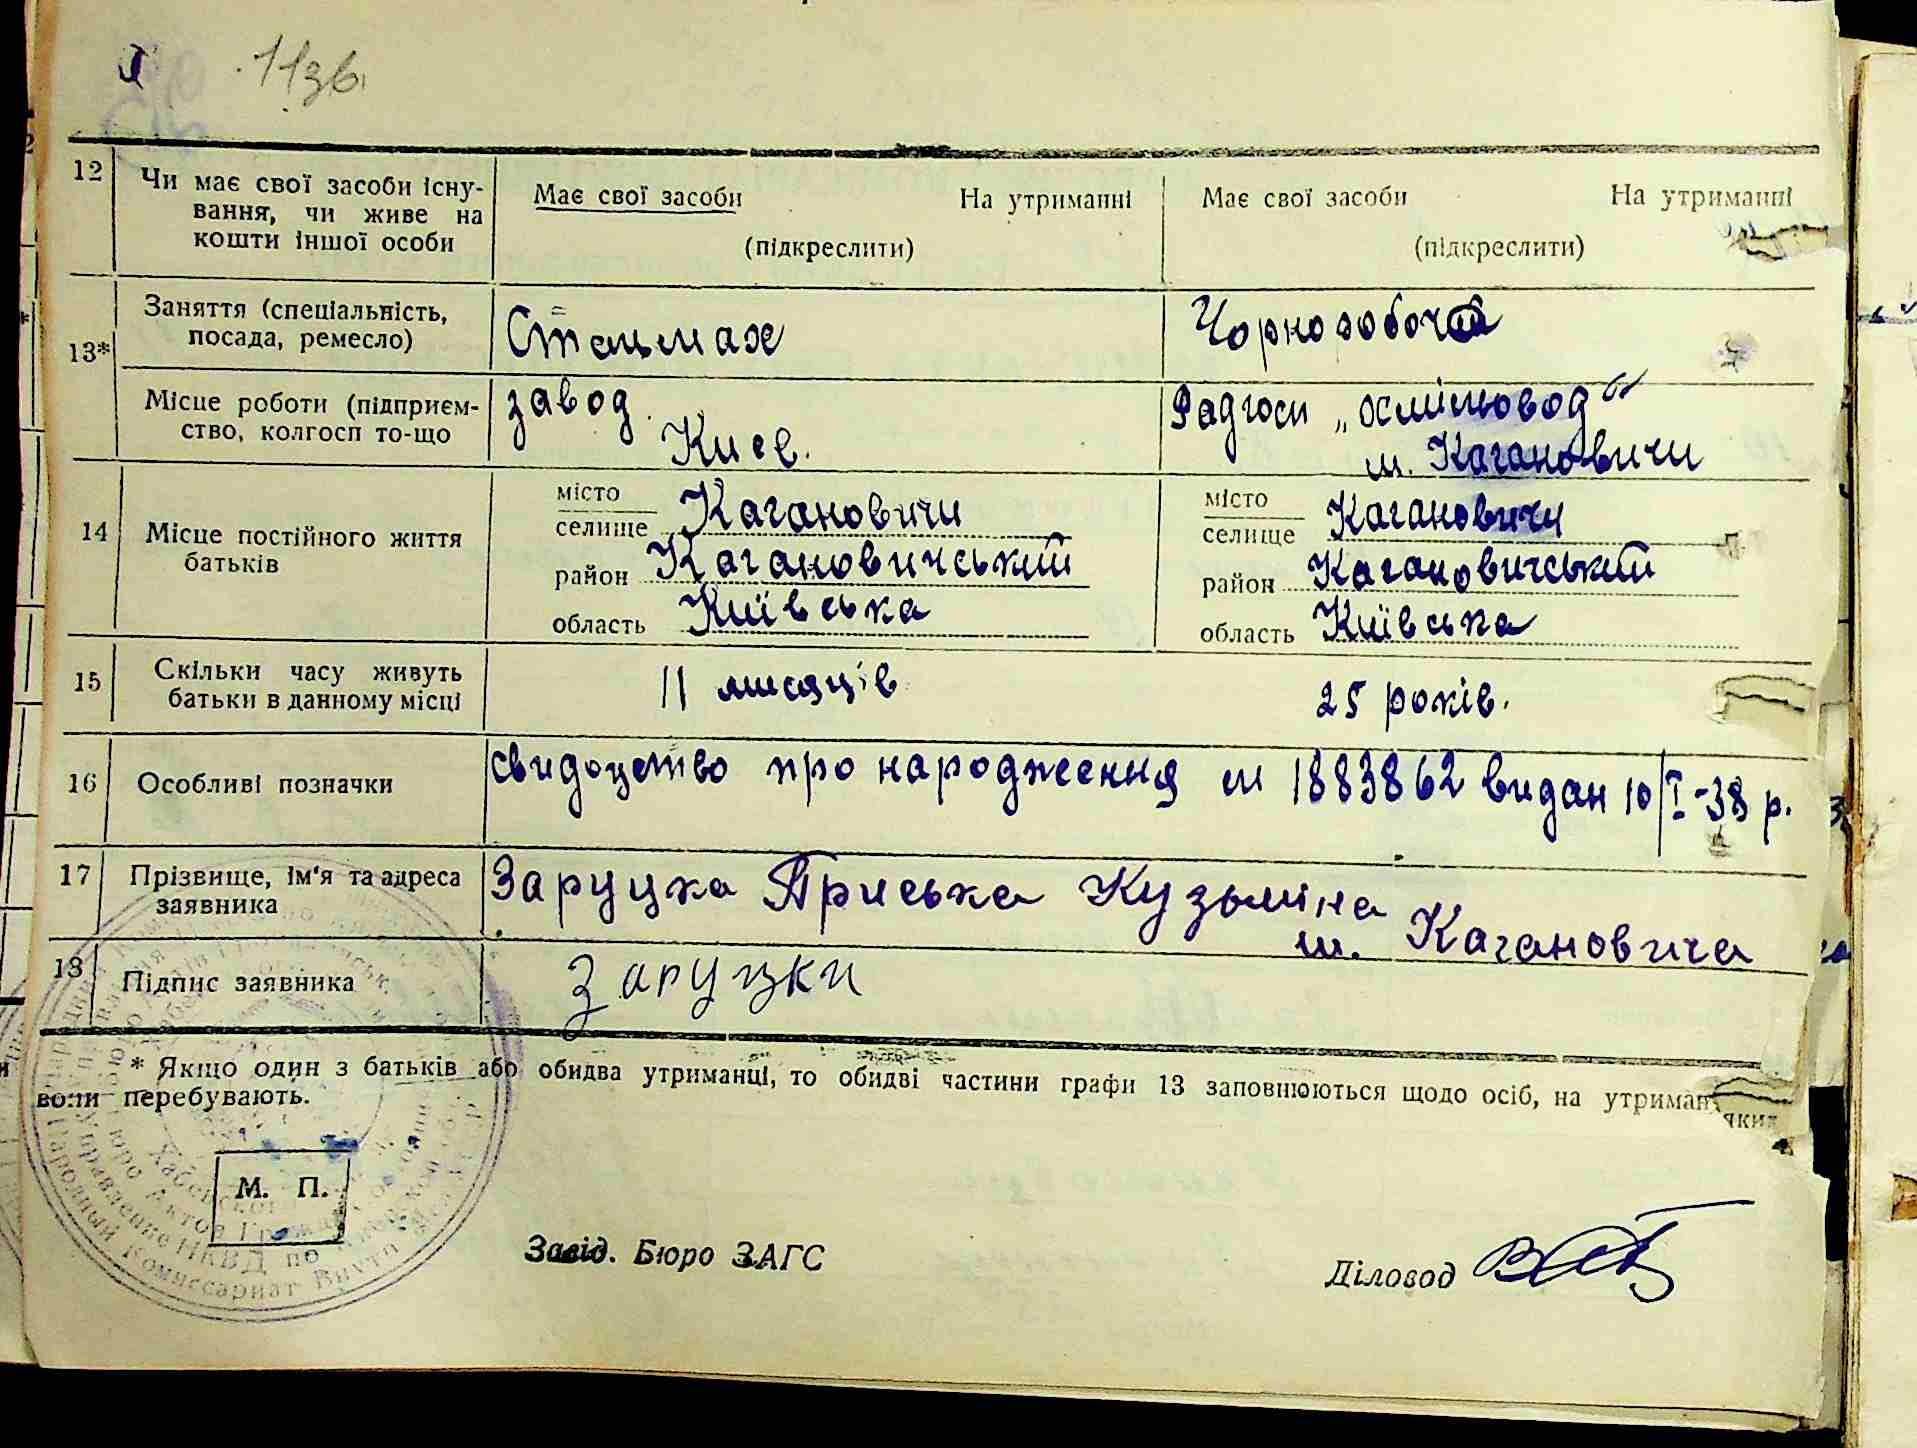 113б.
12
Чи має свої засоби існу-
вання, чи живе на
кошти іншої особи
Має свої засоби На утриманні
(підкреслити)
Має свої засоби На утриманні
(підкреслити)
13*
Заняття (спеціальність,
посада, ремесло)
Чорноробоча
Місце роботи (підприєм-
ство, колгосп то-що
завод.
Київ.
Радгосп
м. Кагановичи
14
Місце постійного життя
батьків
місто
селище Кагановичи
район Кагановичський
область Київська
місто
селище Кагановичи
район Кагановичський
область Київська
15
Скільки часу живуть
батьки в данному місці
11 мисяців
25 років.
16
Особливі позначки
свидоцтво про народження № 1883862 видан 10/I-38 р.
17
Прізвище, ім'я та адреса
заявника
Заруцка Приська Кузьміна
м. Кагановича
18
Підпис заявника
Заруцки
* Якщо один з батьків або обидва утриманці, то обидві частини графи 13 заповнюються щодо осіб, на утриман
яких
вони перебувають.
М. П.
Завід. Бюро ЗАГС
Діловод